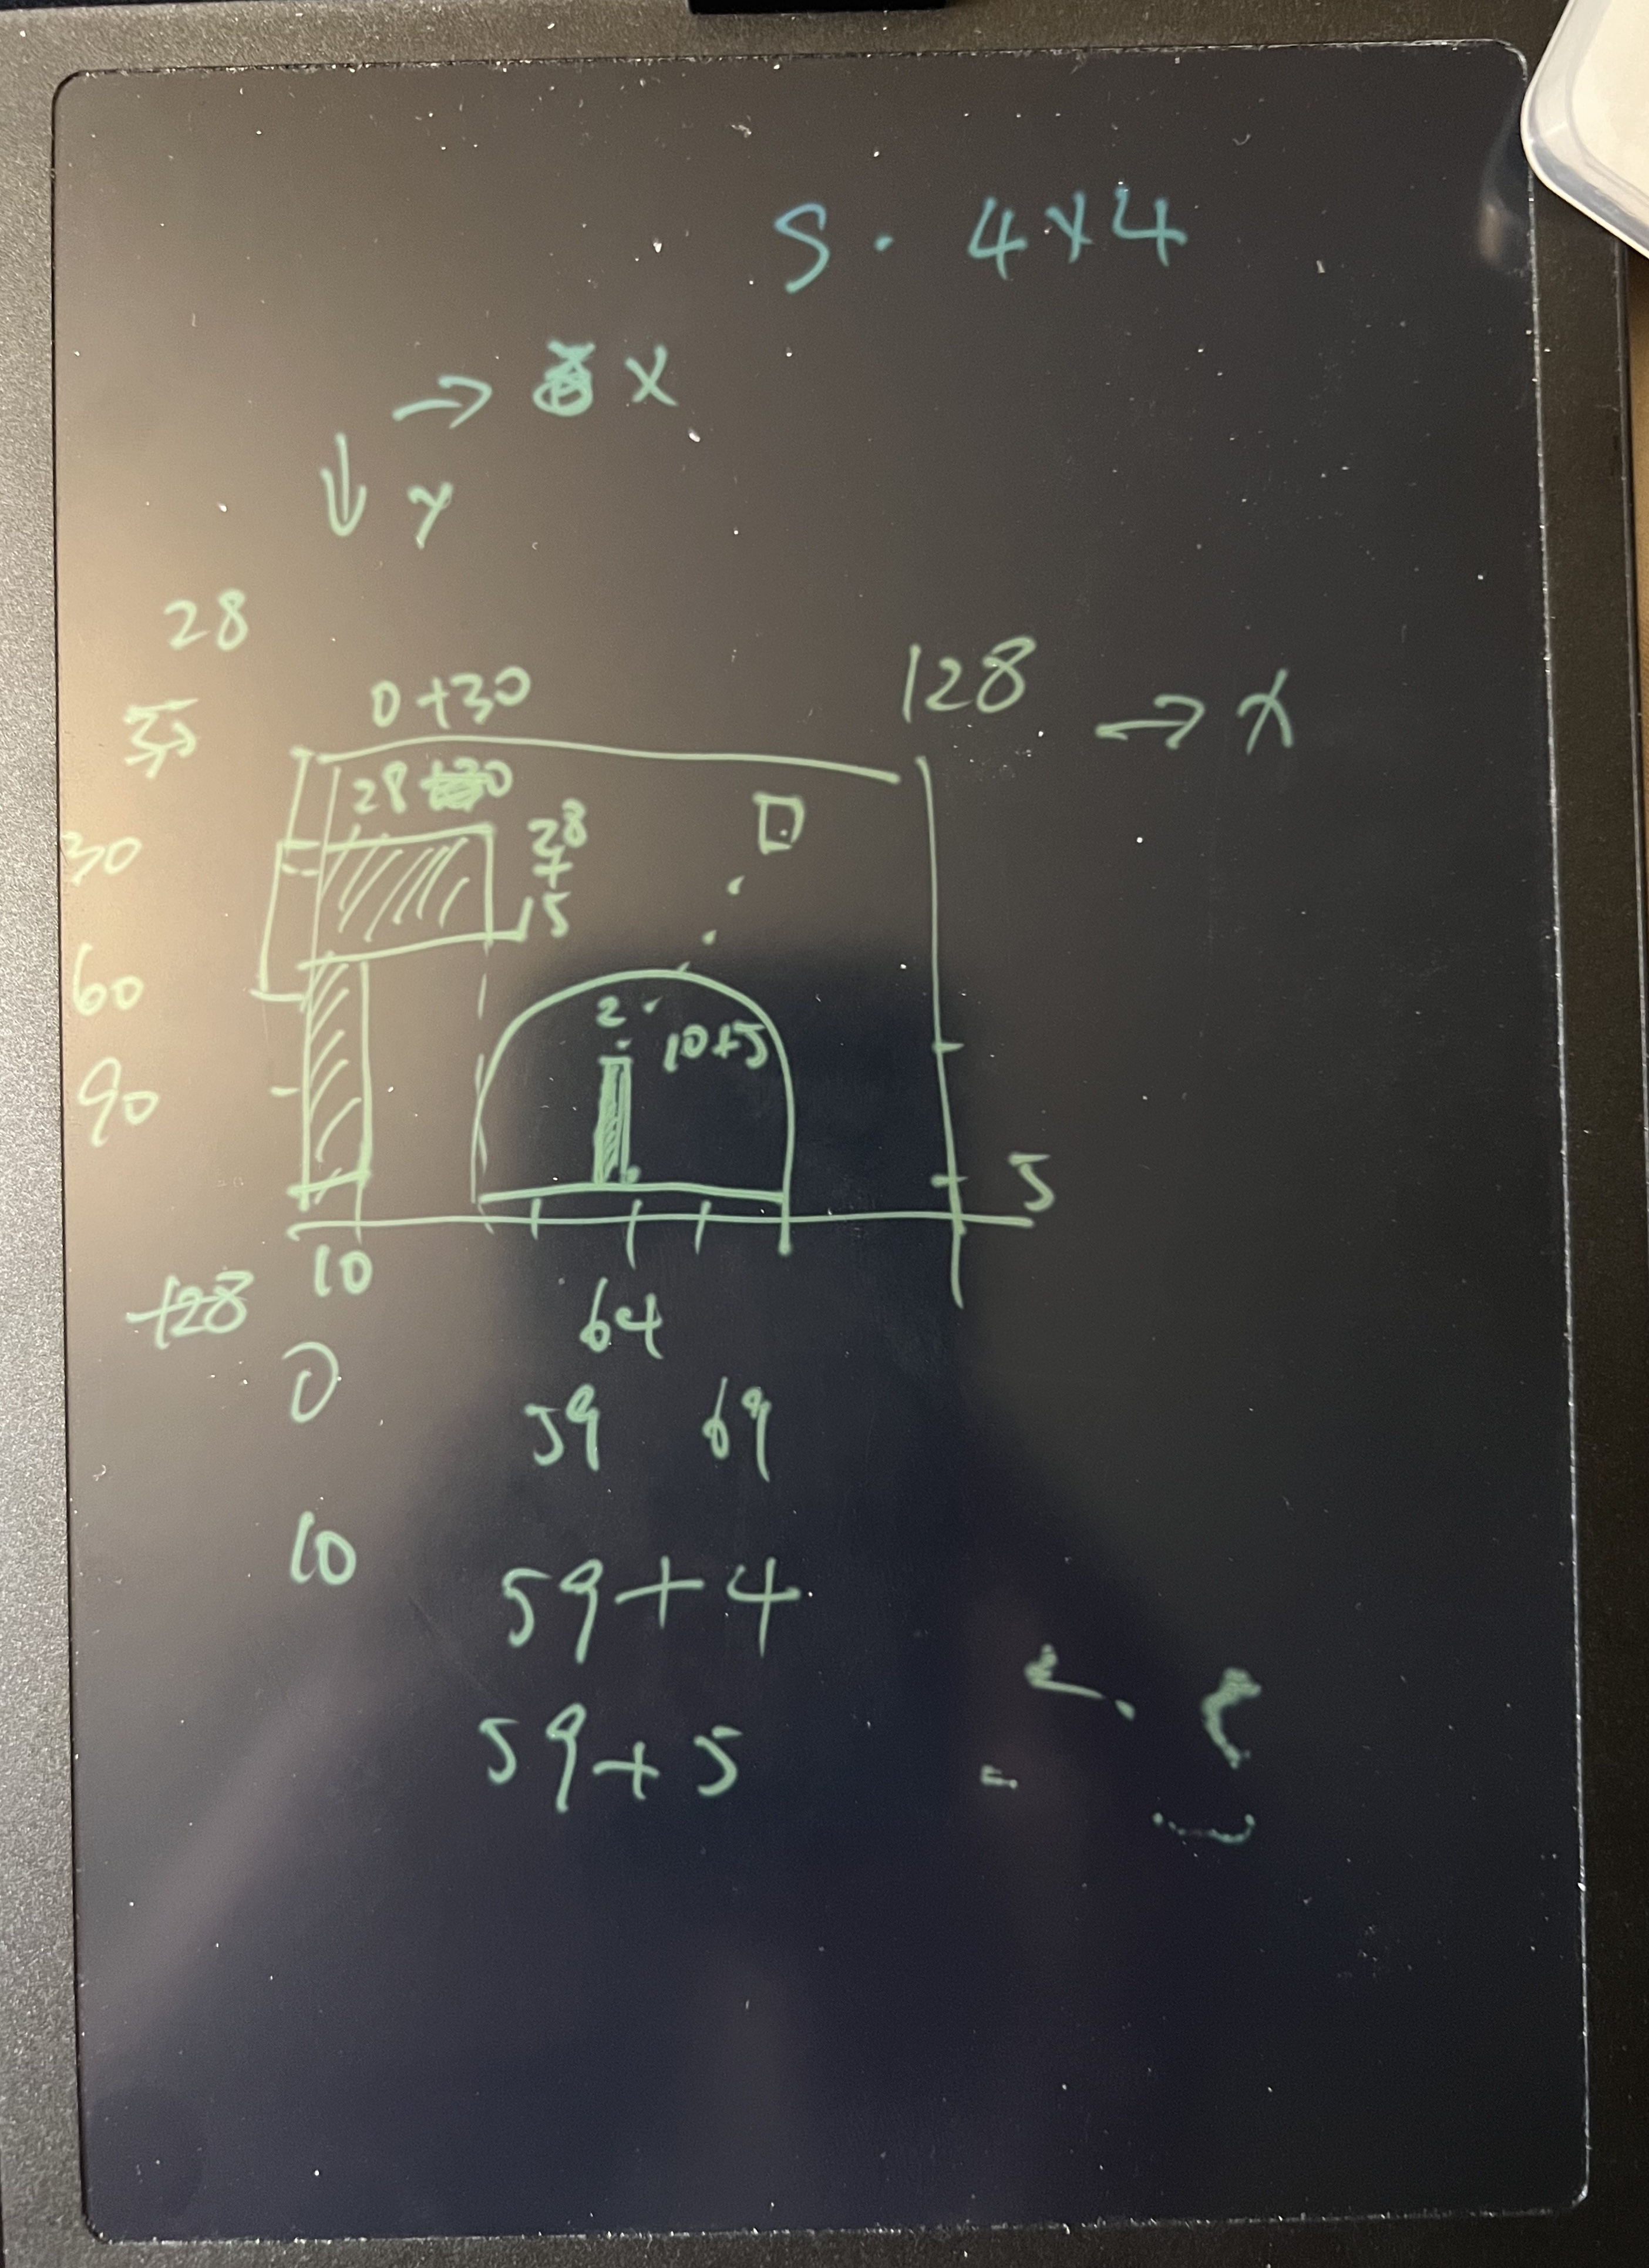 S. 4x4
→ X
↓ y
28
0+30
128 → x
28
30
28
+
15
60
2
10+5
90
5
10
128
64
0
59 69
10
59+4
59+5